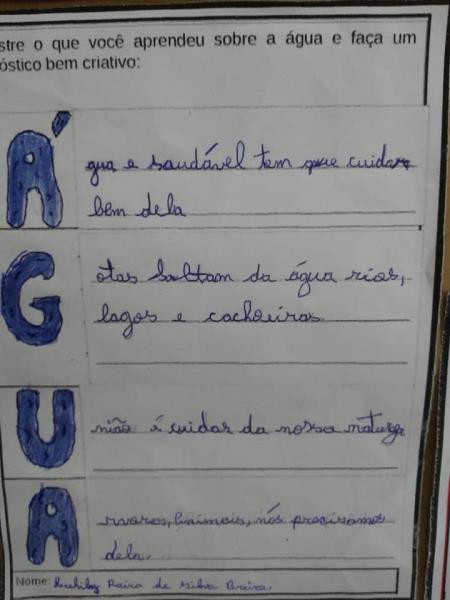 stre o que você aprendeu sobre a água e faça um
óstico bem criativo:
Á gua e saudável tem que cuidar
bem dela
G otas saltam da água rios,
lagos e cachoeiras
U nião é cuidar da nossa natureza
A rvores, Animais, nós precisamos
dela.
Nome: Raira da Silva